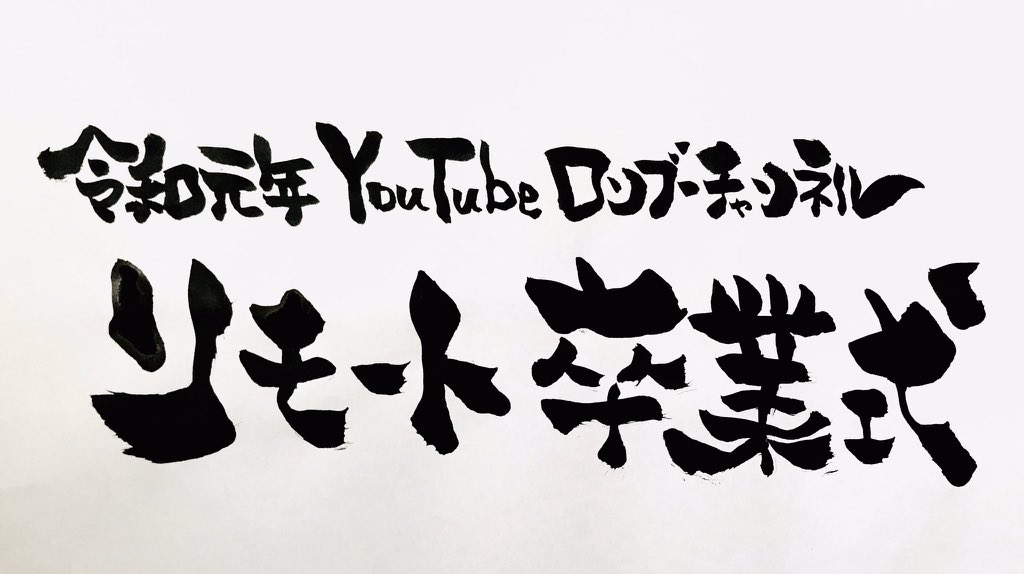 令和元年 YouTube ロンブーチャンネル
リモート卒業式